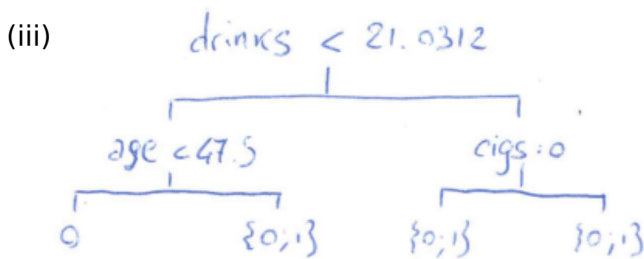 (iii) drinks < 21.0312
age < 47.5 cigs = 0
0 {0;1} {0;1} {0;1}